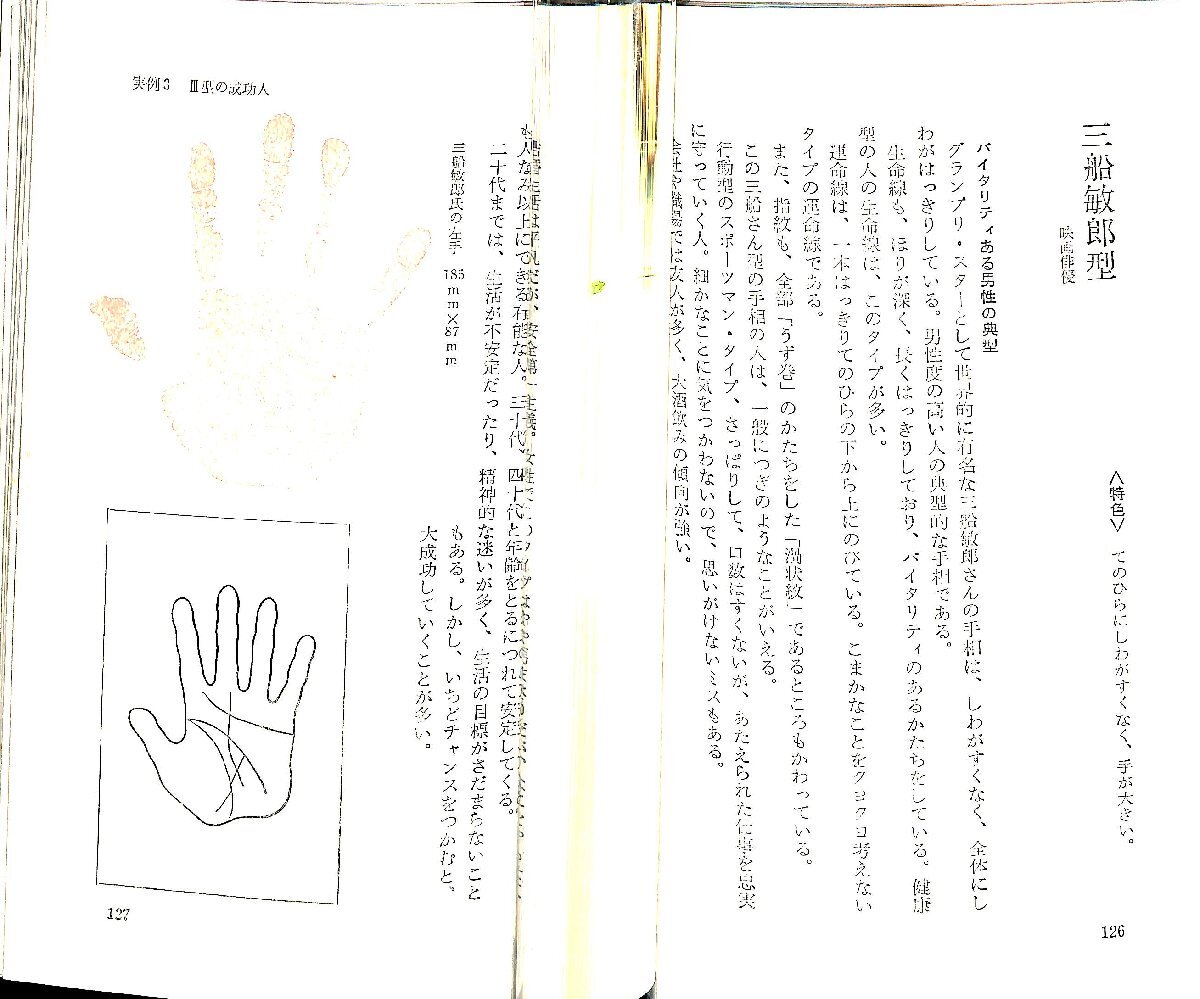 三船敏郎型
映画俳優
〈特色〉 てのひらにしわがすくなく、手が大きい。
バイタリティある男性の典型
グランプリ・スターとして世界的に有名な三船敏郎さんの手相は、しわがすくなく、全体にし
わがはっきりしている。男性度の高い人の典型的な手相である。
生命線も、ほりが深く、長くはっきりしており、バイタリティのあるかたちをしている。健康
型の人の生命線は、このタイプが多い。
運命線は、一本はっきりてのひらの下から上にのびている。こまかなことをクヨクヨ考えない
タイプの運命線である。
また、指紋も、全部「うず巻」のかたちをした「渦状紋」であるところもかわっている。
この三船さん型の手相の人は、一般につぎのようなことがいえる。
行動型のスポーツマン・タイプ、さっぱりして、口数はすくないが、あたえられた仕事を忠実
に守っていく人。細かなことに気をつかわないので、思いがけないミスもある。
会社や職場では友人が多く、大酒飲みの傾向が強い。
126
実例3 Ⅲ型の成功人
結婚生活は平凡だが、安全第一主義。女性でこのタイプは
も人なみ以上にできる有能な人。三十代、四十代と年齢をとるにつれて安定してくる。
二十代までは、生活が不安定だったり、精神的な迷いが多く、生活の目標がさだまらないこと
もある。しかし、いちどチャンスをつかむと、
大成功していくことが多い。
三船敏郎氏の左手 185mm×87mm
127